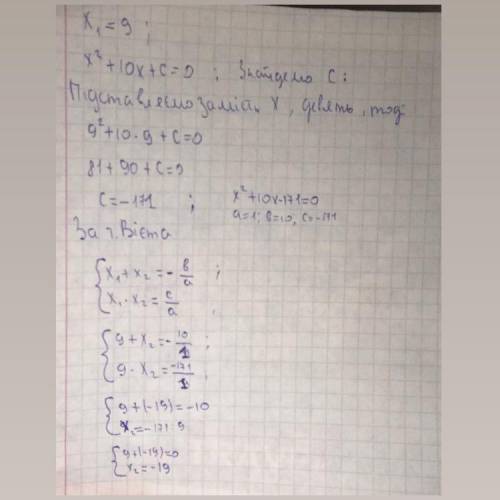 x₁ = 9 ;
x² + 10x + c = 0 ; Знайдемо c :
Підставляємо замість x, девять, тоді
9² + 10 · 9 + c = 0
81 + 90 + c = 0
c = -171 ; x² + 10x - 171 = 0
a = 1; b = 10; c = -171
За т. Вієта
x₁ + x₂ = - b/a ;
x₁ · x₂ = c/a
9 + x₂ = - 10/1 ;
9 · x₂ = -171/1
9 + (-19) = -10
x₂ = -171 : 9
9 + (-19) = 0
x₂ = -19